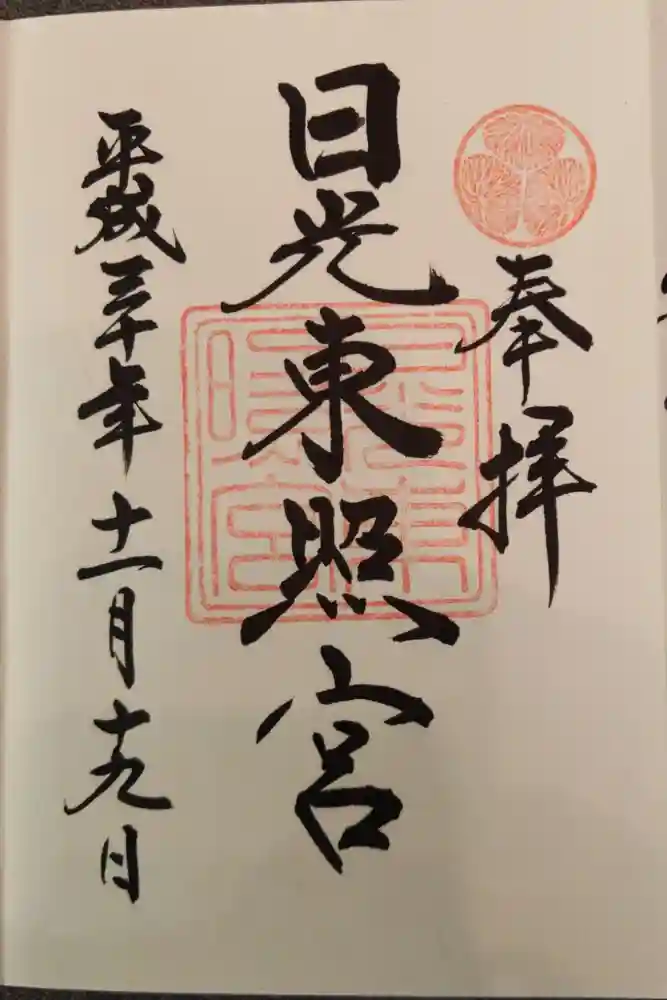 奉拝
日光東照宮
平成三十年十一月十九日